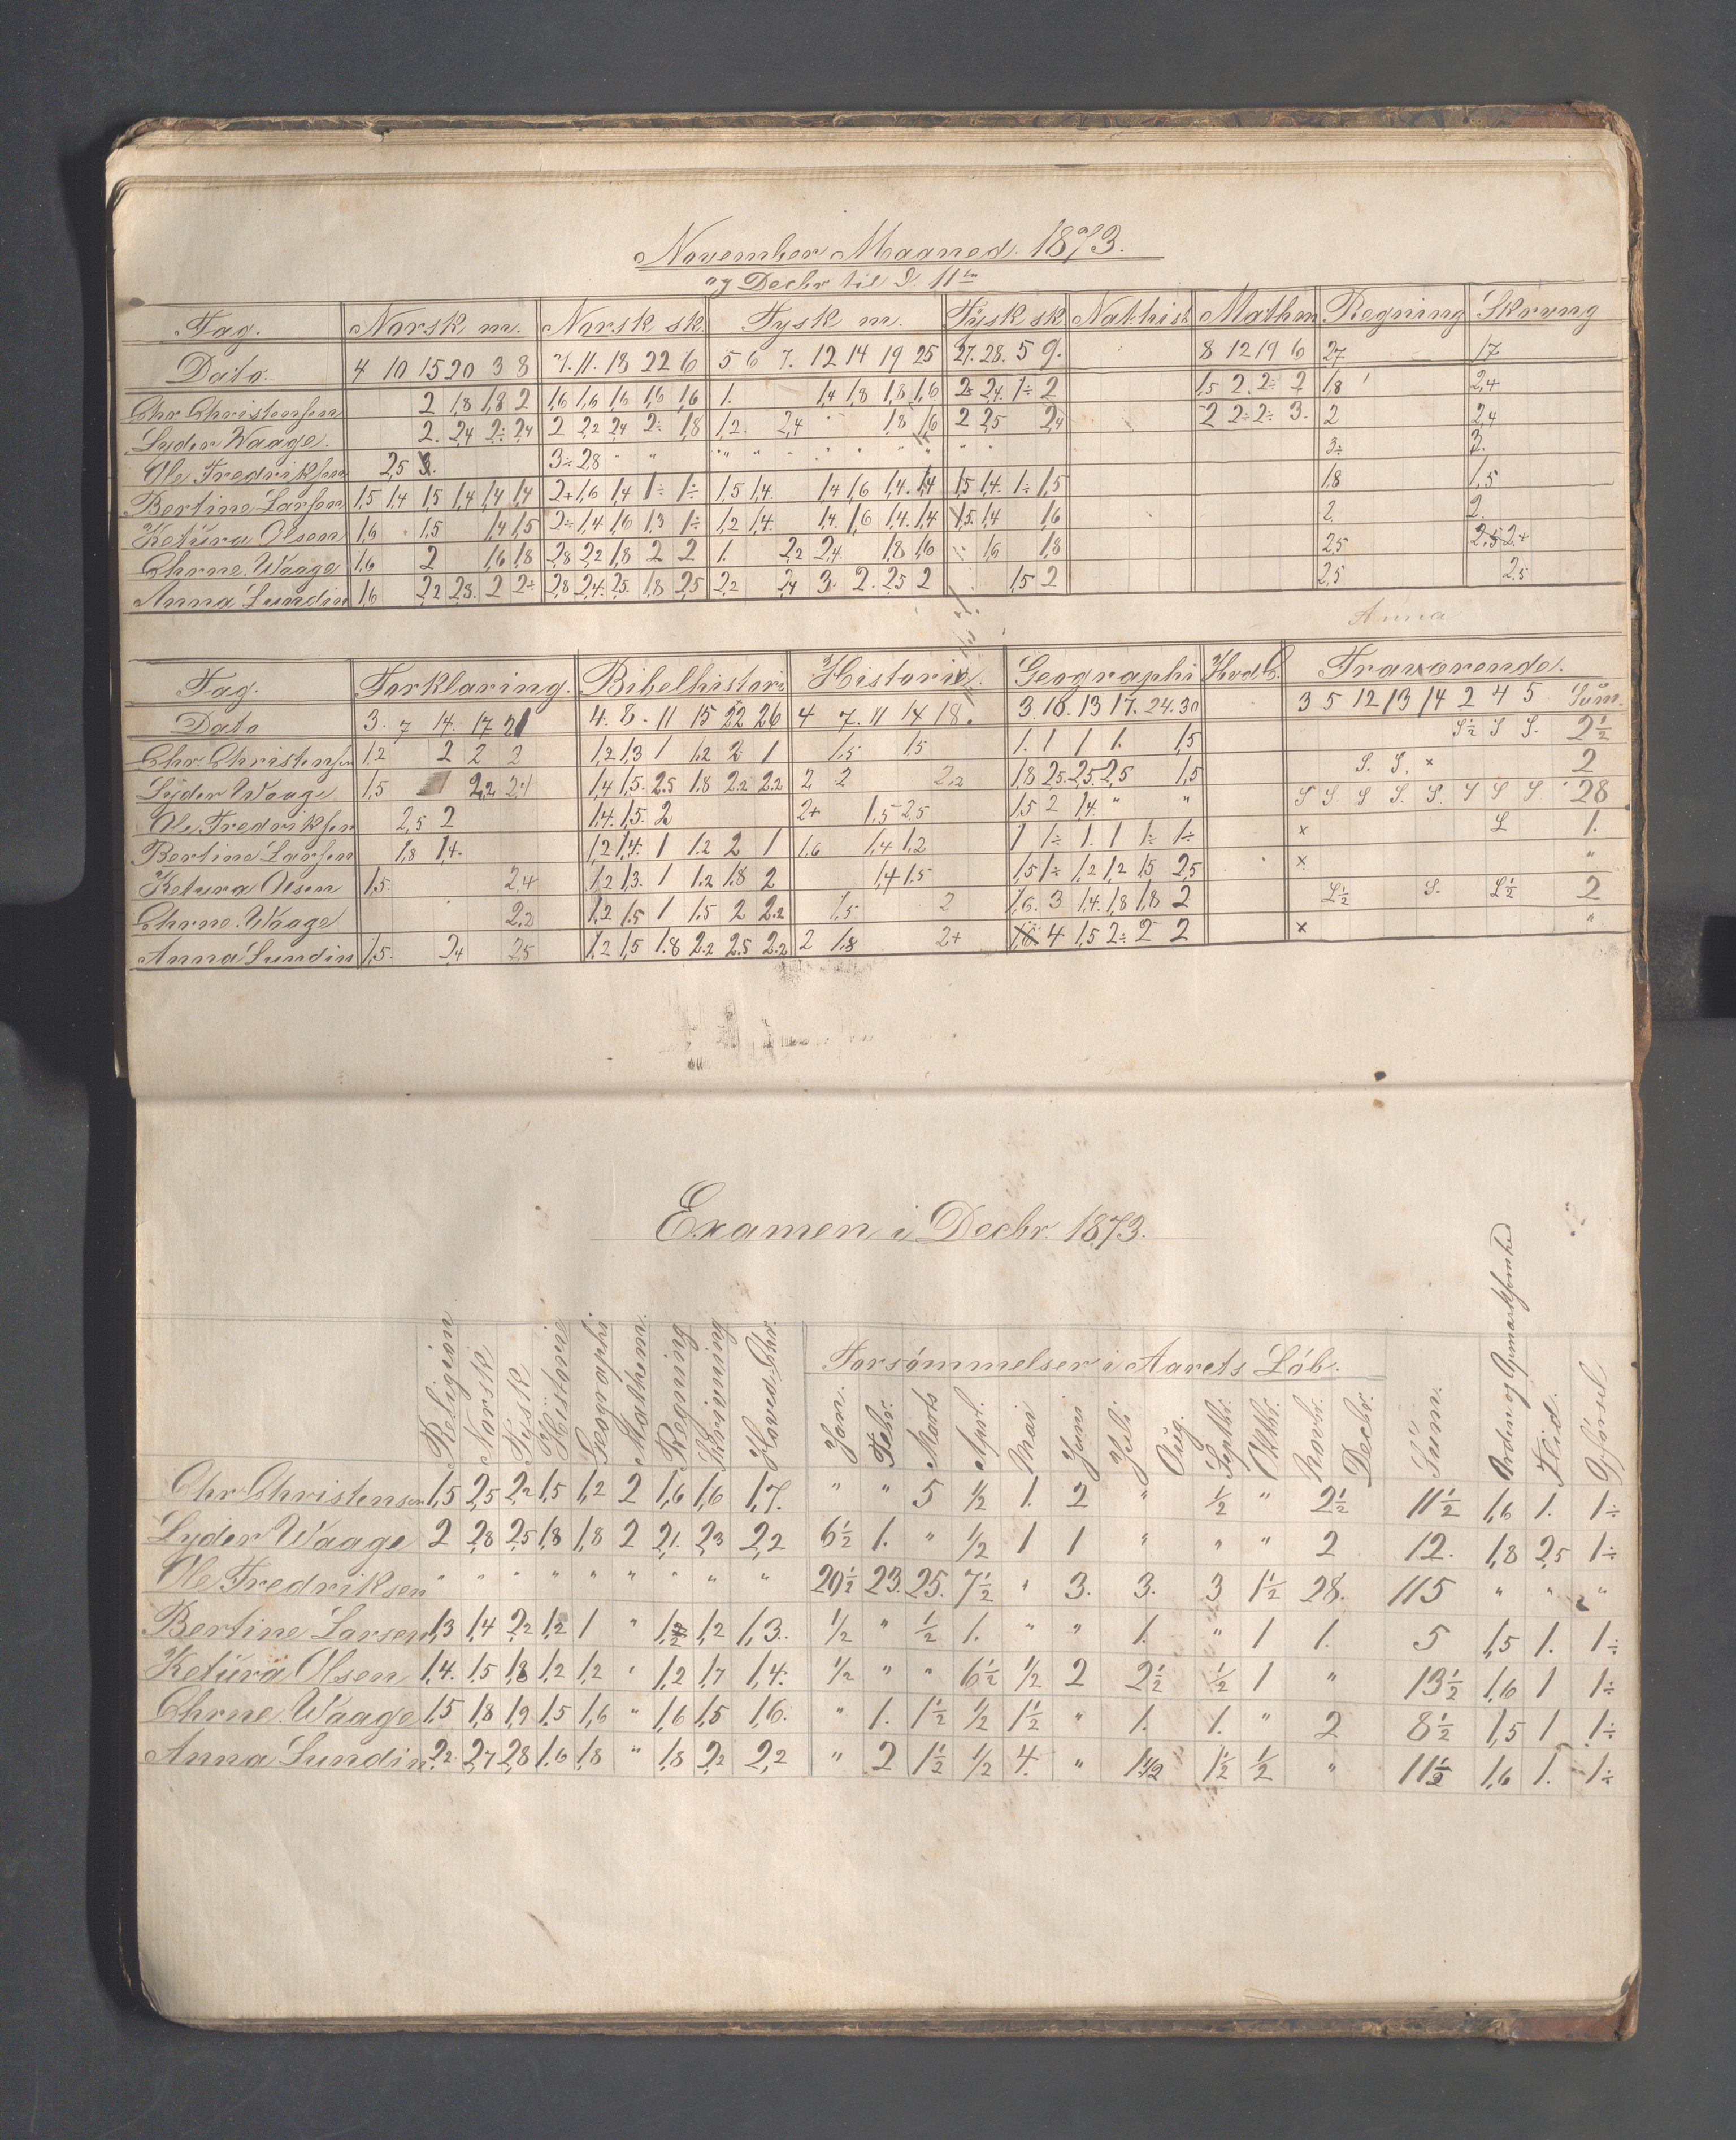 November Maaned. 1873.
og Decbr til d. 11te
Fag. Norsk m. Norsk sk. Tysk m. Tysk sk Nat.hist. Mathm Regning Skrvng
Dato. 4 10 15 20 3 8 7. 11. 18 22 6 5 6 7. 12 14 19 25 27. 28. 5 9. 8 12 19 6 27 17
Chr. Christensen 2 1,8 1,8 2 1,6 1,6 1,6 1,6 1,6 1. 1,4 1,8 1,8 1,6 2 2,4. 1÷ 2 1,5 2. 2÷ 2 1,8 2,4
Lyder Waage. 2. 2,4 2÷ 2,4 2 2,2 2,4 2÷ 1,8 1,2. 2,4 1,8 1,6 2 2,5 2,4 2 2÷ 2÷ 3. 2 2,4
Ole Fredriksen 2,5 3. 3÷ 2,8 " " 3÷ 3.
Bertine Larsen 1,5 1,4 1,5 1,4 1,4 1,4 2+ 1,6 1,4 1÷ 1÷ 1,5 1,4. 1,4 1,6 1,4. 1,4 1,5 1,4. 1÷ 1,5 1,8 1,5
Ketura Olsen 1,6 1,5 1,4 1,5 2÷ 1,4 1,6 1,3 1÷ 1,2 1,4. 1,4. 1,6 1,4. 1,4 1,5. 1,4 1,6 2. 2.
Chrne. Waage 1,6 2 1,6 1,8 2,8 2,2 1,8 2 2 1. 2,2 2,4. 1,8 1,6 1,6 1,8 2,5 2,5 2+
Anna Lundin 1,6 2,2 2,8. 2 2÷ 2,8 2,4. 2,5. 1,8 2,5 2,2 2,4 3. 2. 2,5 2 1,5 2 2,5 2,5
Anna
Fag. Forklaring. Bibelhistori Historie. Geographi Hvd C. Fraværende.
Dato 3. 7 14. 17 21 4. 8. 11 15 22 26 4 7. 11 14 18. 3. 10. 13 17. 24. 30 3 5 12 13 14 2 4 5 Sum.
Chr. Christensen 1,2 2 2 2 1,2 1,3 1 1.2 2 1 1,5 1,5 1. 1 1 1. 1,5 S½ S S. 2½
Lyder Waage 1,5 2,2 2,4 1,4 1,5. 2.5 1.8 2.2 2.2 2, 2 2,2 1,8 2,5. 2,5. 2,5 1,5 S. S. × 2
Ole Fredriksen 2,5 2 1,4. 1,5. 2 2+ 1,5 2,5 1,5 2 1,4. " " S S S S. S. S S S 28
Bertine Larsen 1,8 1,4. 1,2 1,4. 1 1.2 2 1 1,6 1,4 1,2 1 1÷ 1. 1 1÷ 1÷ × S 1.
Ketura Olsen 1,5. 2,4 1,2 1,3. 1 1.2 1.8 2 1,4 1,5 1,5 1÷ 1,2 1,2 1,5 2,5 × "
Chrne. Waage 2,2 1,2 1.5 1 1.5 2 2.2 1,5 2 1,6. 3 1,4. 1,8 1,8 2 S½ S. S½ 2
Anna Lundin 1,5. 2,4 2,5 1,2 1,5 1.8 2.2 2.5 2.2 2 1,8 2+ 4 1,5 2÷ 2 2 × "
Examen i Decbr. 1873.
Religion Norsk Tysk Historie Geographi Mathem. Regning Skrivning Hoved-Chr. Forsömmelser i Aarets Löb. Sum. Orden og Opmærksomhed Flid. Opförsel
Jan. Febr. Marts Aprl. Mai Juni Juli Aug. Septbr. Oktbr. Novbr. Decbr.
Chr Christensen 1,5 2,5 2,2 1,5 1,2 2 1,6 1,6 1,7. " " 5 ½ 1. 2 " ½ " 2½ 11½ 1,6 1. 1÷
Lyder Waage 2 2,8 2,5 1,8 1,8 2 2,1. 2,3 2,2 6½ 1. " ½ 1 1 " " " 2 12. 1,8 2,5 1÷
Ole Fredriksen " " " " " " " " " 20½ 23. 25. 7½ " 3. 3. 3 1½ 28. 115 " " "
Bertine Larsen 1,3 1,4 2,2 1,2 1 " 1,2 1,2 1,3. ½ " ½ 1. " " 1. " 1 1. 5 1,5 1. 1÷
Ketura Olsen 1,4. 1,5 1,8 1,2 1,2 " 1,2 1,7 1,4. ½ " " 6½ ½ 2 2½ ½ 1 " 13½ 1,6 1 1÷
Chrne. Waage 1,5 1,8 1,9 1,5 1,6 " 1,6 1,5 1,6. " 1. 1½ ½ 1½ " 1. 1. " 2 8½ 1,5 1 1÷
Anna Lundin 2,2 2,7 2,8 1,6 1,8 " 1,8 2,2 2,2 " 2 1½ ½ 4. " 1½ 1½ ½ " 11½ 1,6 1. 1÷